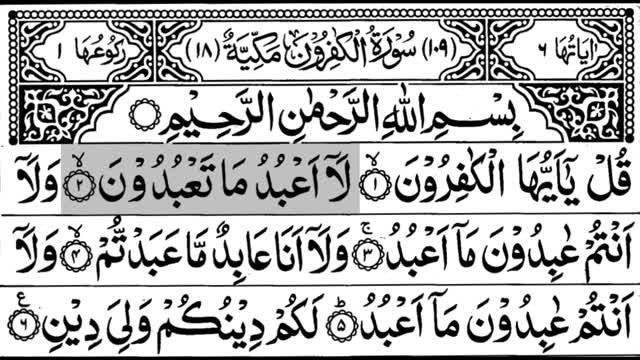 اٰيَاتُهَا ٦ (١٠٩) سُوْرَةُ الْكٰفِرُوْنَ مَكِّيَّةٌ (١٨) رُكُوْعُهَا ١
بِسْمِ اللهِ الرَّحْمٰنِ الرَّحِيْمِ
قُلْ يٰۤاَيُّهَا الْكٰفِرُوْنَ ۙ‏﴿١﴾ لَاۤ اَعْبُدُ مَا تَعْبُدُوْنَ ۙ‏﴿٢﴾ وَلَاۤ
اَنْتُمْ عٰبِدُوْنَ مَاۤ اَعْبُدُ ۚ‏﴿٣﴾ وَلَاۤ اَنَا عَابِدٌ مَّا عَبَدْتُّمْ ۙ‏﴿٤﴾ وَلَاۤ
اَنْتُمْ عٰبِدُوْنَ مَاۤ اَعْبُدُ ؕ‏﴿٥﴾ لَكُمْ دِيْنُكُمْ وَلِيَ دِيْنِ ۧ‏﴿٦﴾